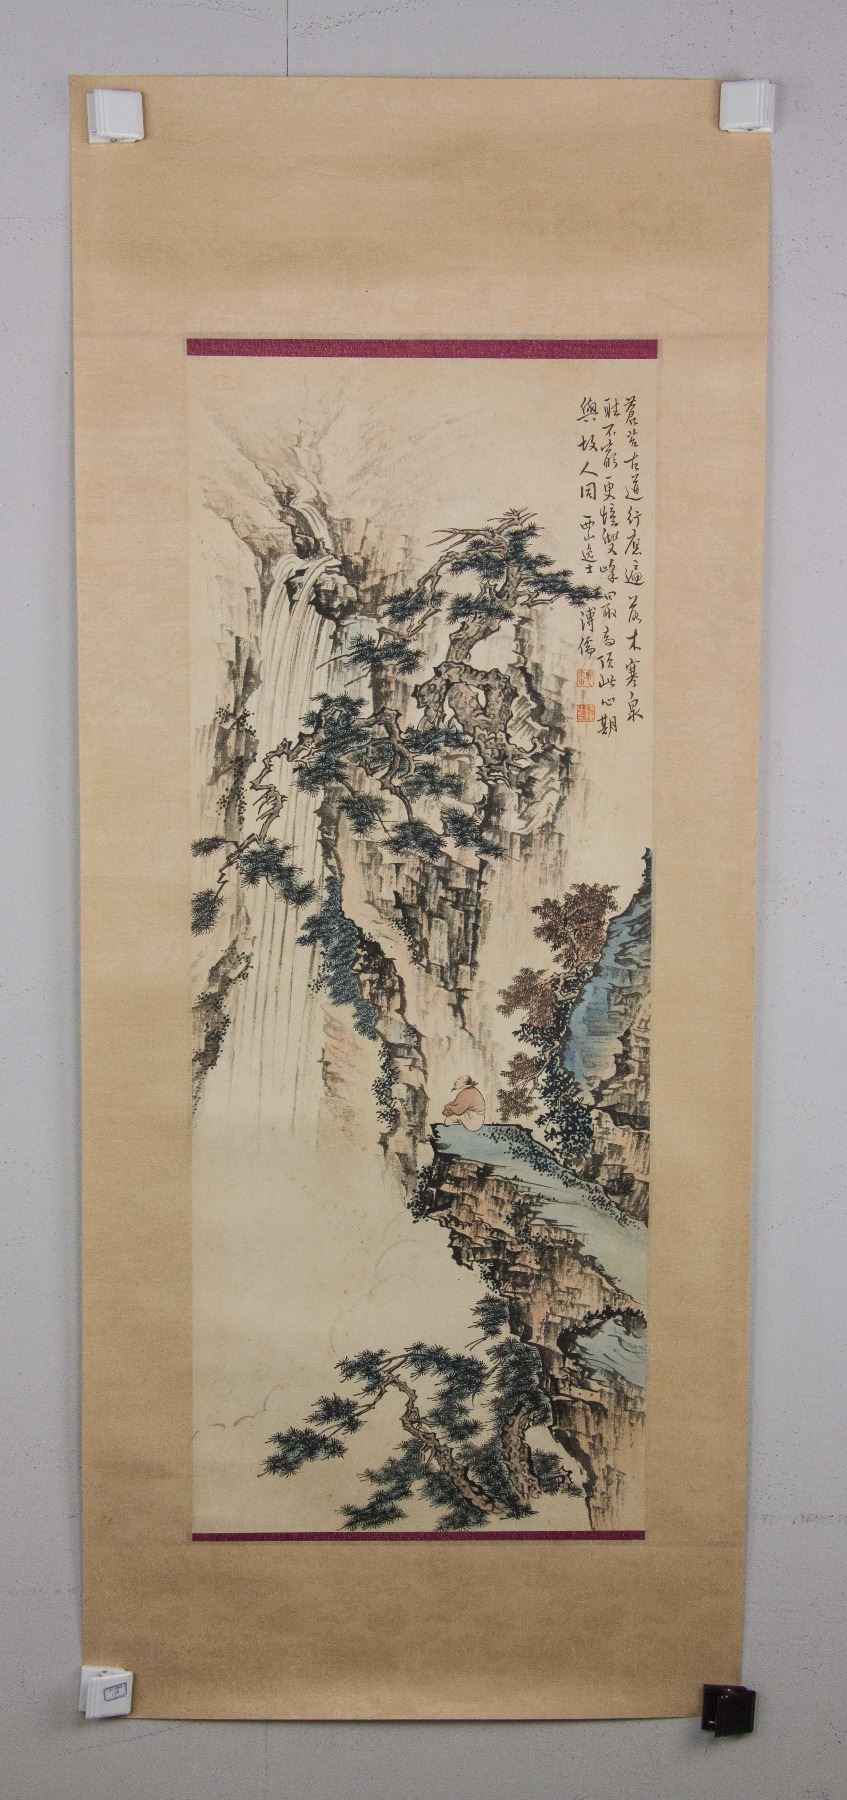 蒼苔古道行應遍落木寒泉
聽不窮更憶雙峰最高頂此心期
與故人同 西山逸士 溥儒